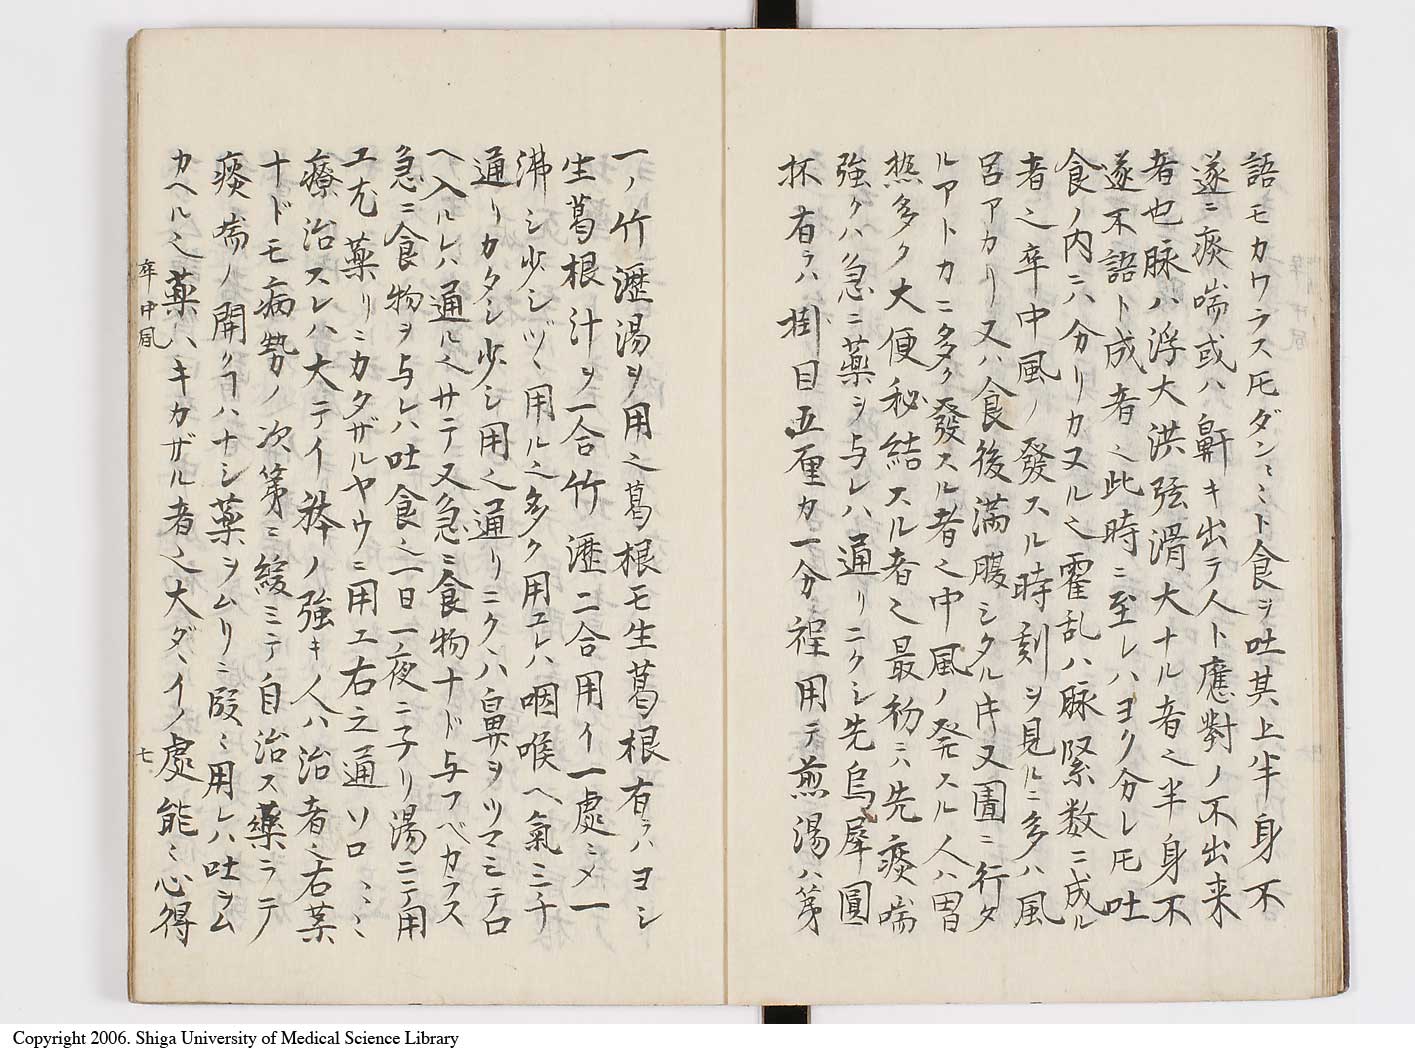 語モカワラス𪜈ダンミミト食ヲ吐其上半身不
遂ニ痰喘或ハ鼾キ出テ人ト應對ノ不出来
者也脉ハ浮大洪弦滑大ナル者之半身不
遂不語ト成者之此時ニ至レハヨク分レ𪜈吐
食ノ内ニハ分リカヌル之霍乱ハ脉緊数ニ成ル
者之卒中風ノ發スル時刻ヲ見ルニ多ハ風
呂アカリ又ハ食後満腹シタル𪜈又圊ニ行タ
ルアトカニ多ク發スル者之中風ノ発スル人ハ胃
熱多ク大便秘結スル者之最初ニハ先痰喘
強クハ急ニ薬ヲ与レハ通リニクシ先烏犀圓
抔有ラハ掛目五厘カ一分程用テ煎湯ハ第
一ノ竹瀝湯ヲ用之葛根モ生葛根有ラハヨシ
生葛根汁ヲ一合竹瀝二合用イ一處ニメ一
沸シ少シヅヽ用ル之多ク用ユレハ咽喉ヘ氣ミチ
通リカタシ少シ用之通リニクハ鼻ヲツマミテロ
ヘ入ルレハ通ルヘサテ又急ミ食物ナド与フベカラス
急ニ食物ヲ与レハ吐食之一日一夜ニ子リ湯ニテ用
ユ尤薬リミカタザルヤウニ用ユ右之通ソロミミミ
療治スレハ大テイ秡ノ強キ人ハ治者之右薬
ナドモ病勢ノ次第ミ緩ミテ自治ス藥ニラテ
痰喘ノ開クヿハナシ薬ヲムリニ段ミ用レハ吐ラム
カヘル之薬ハキカザル者之大ダイノ處能ミ心得
卒中風
七